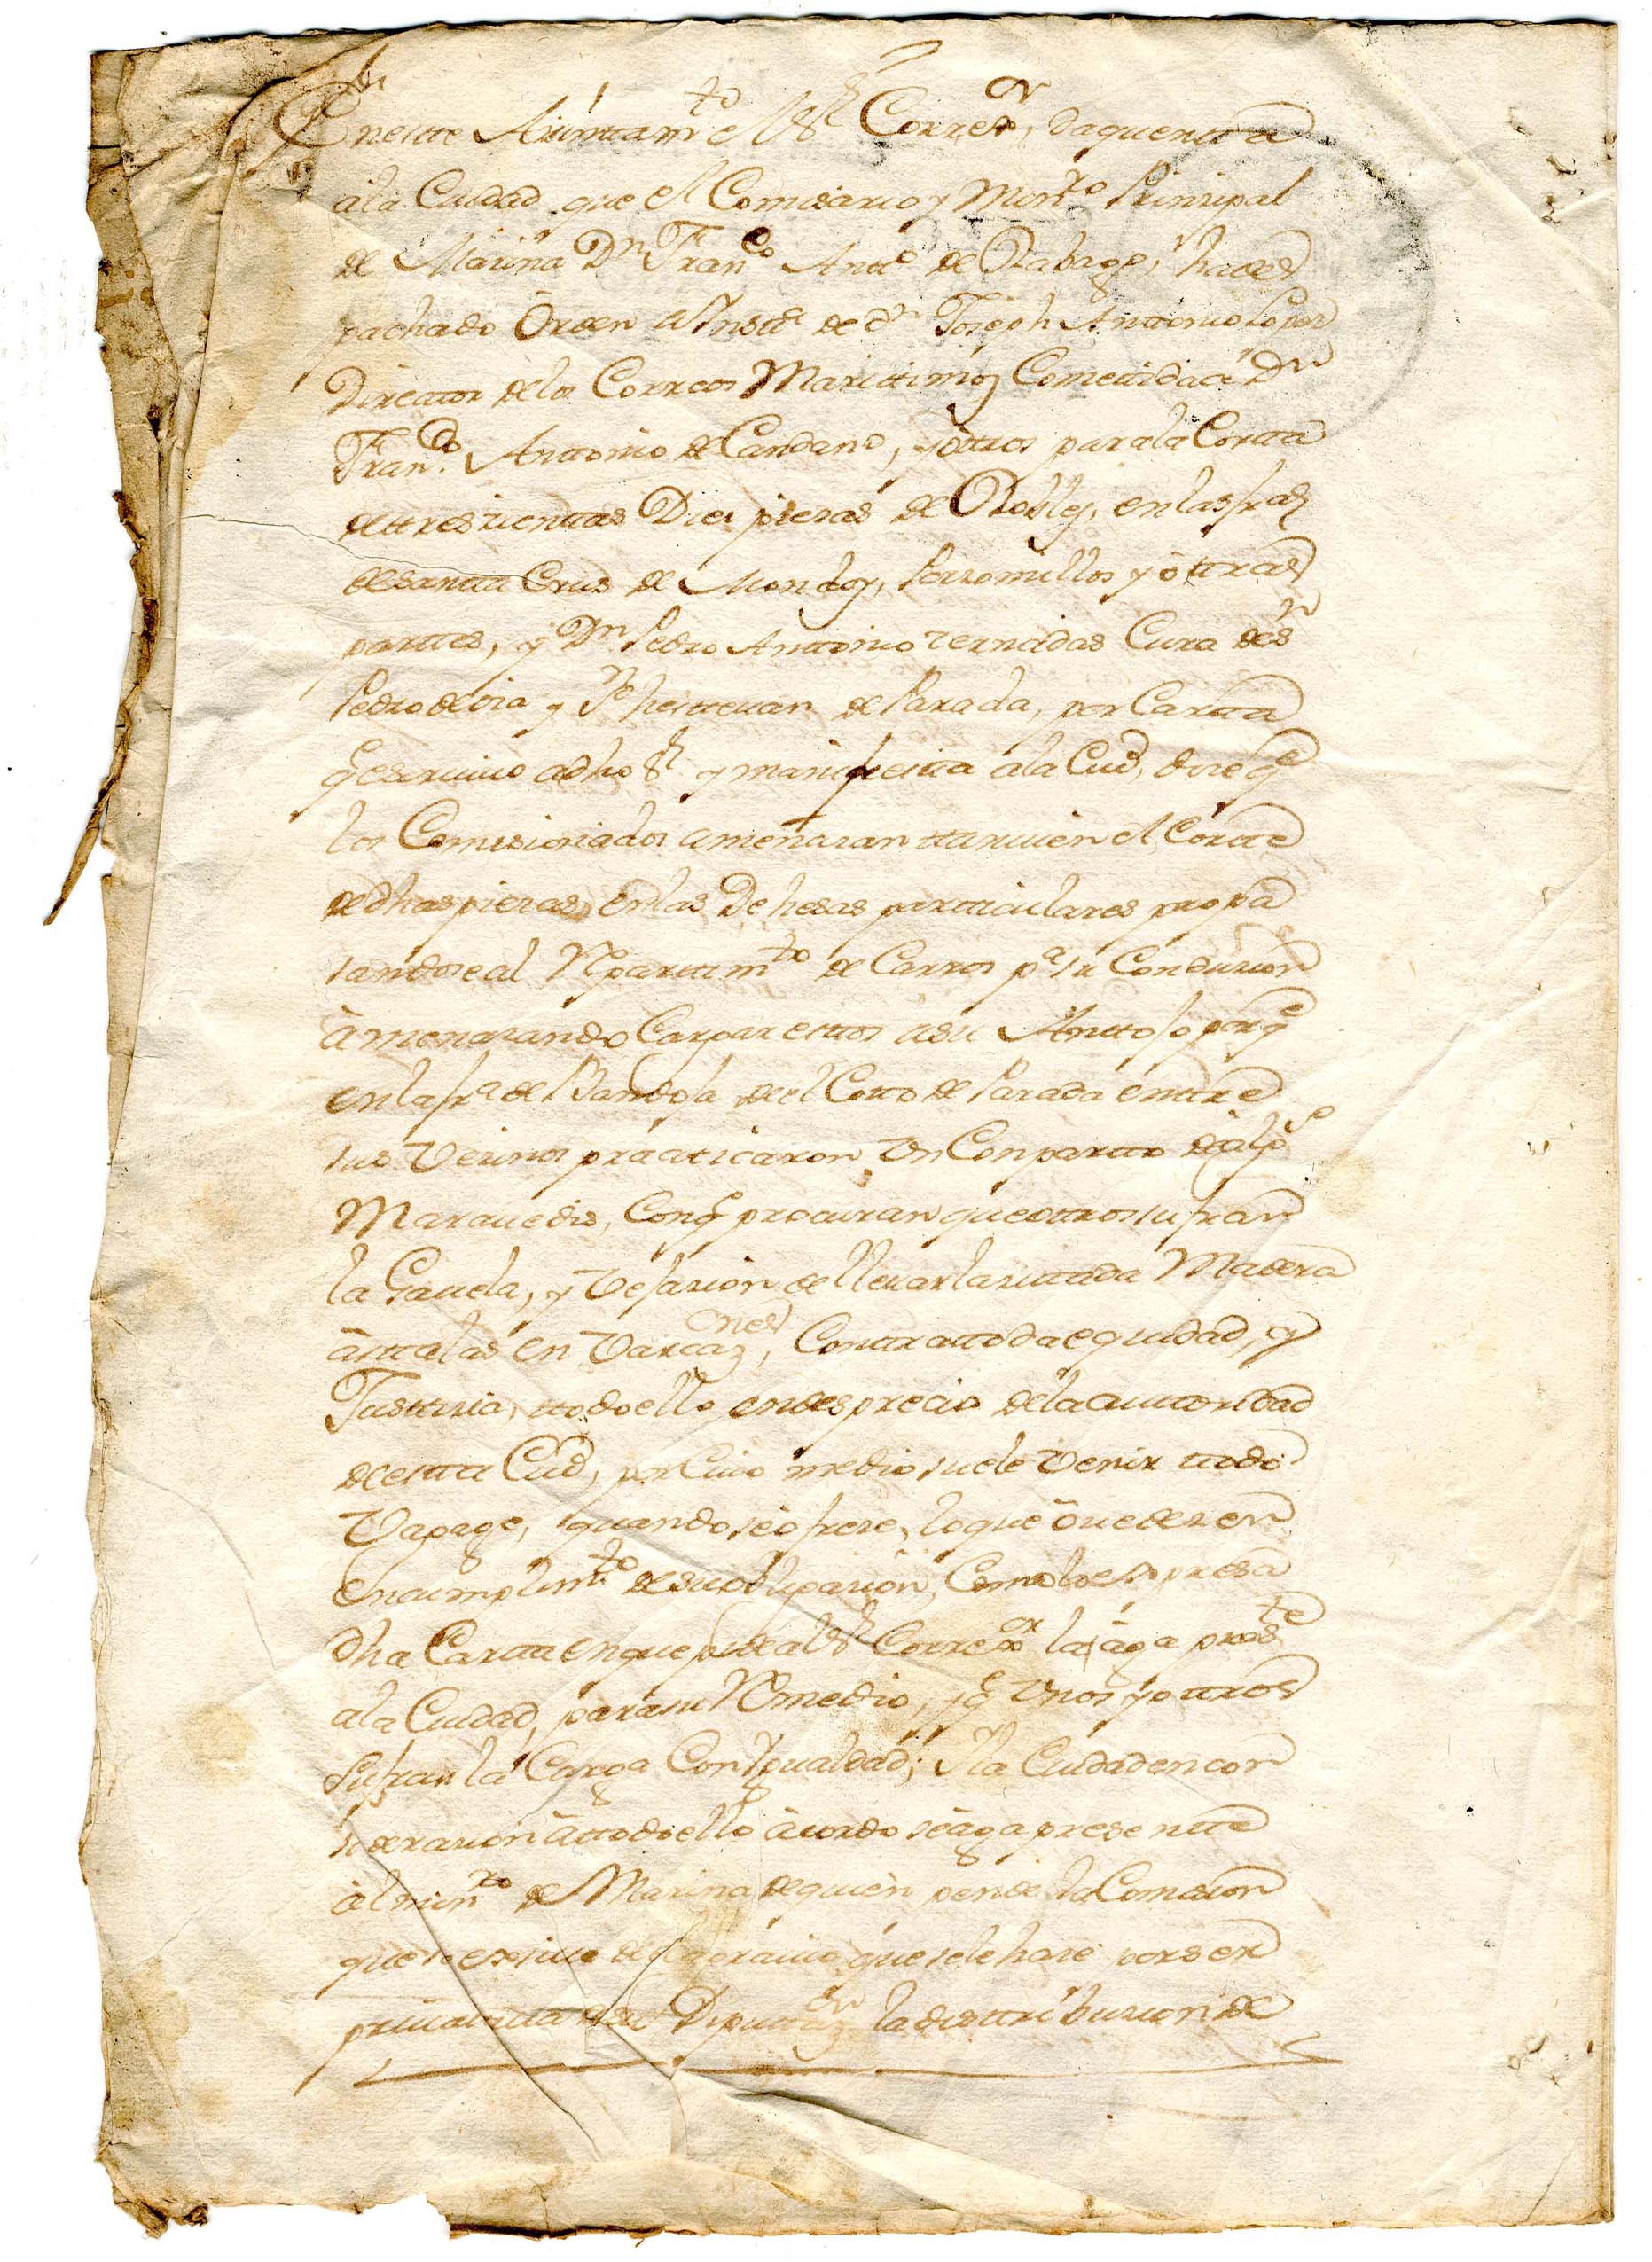 En este Aiuntamto el Sr Corredor, da quentta
a la Ciudad que el Comisario y Minro Prinsipal
de Marina Dn Franco Antto de Rabago, ha des
pachado Orden a Insta de dn Joseph Antonio Lopez
Director de los Correos Marittimos Comettida a Dn
Franco Anttonio de Candano, y ottros para la Cortta
de ttreszienttas Diez piezas de Robles, en las fras
de santta Crus de Mondoy, Porzomillos y ottras
parttes, y Dn Pedro Anttonio Cernadas Cura de Sn
Pedro de oia y Sn hestteuan de Parada, por Cartta
q escriuio a dho Sr y manifiestta a la Ciud, dize q
los Comisionados amenazan ttanuien el Cortte
de dhas piezas en las Dehesas partticulares propa
sandose al Reparttimto de Carros pa su Conduzion
amenazando Cargar esttos a su Anttojo porq
en la fra de Bandoja del Cotto de Parada enttre
sus Vezinos practticaron Un Conpartto de algs
Marauedis, Conq procuran que ottros sufran
la Gauela, y Vejazion de lleuar la zittada Madera
astta las en Uarcaznes, Conttra ttoda equidad, y
Justtizia, ttodo ello en desprecio de la auttoridad
de estta Ciud, por Cuio medio suele Venir ttodo
Vagage, quando se ofreze, lo que ouedezen
en cumplimto de su obligazion, Como lo espresa
dha Cartta en que pide al Sr Corredor la aga preste
a la Ciudad, para su Remedio, y q Unos y ottros
sufran la Carga Con Ygualdad; Y la Ciudad en con
siderazion a ttodo ello acordo se aga presentte
al minro de Marina de quien pende la Comision
que se escsiue del agrauio que se le haze por ser
priuattiua de su Diputtazon la disttribuzion de